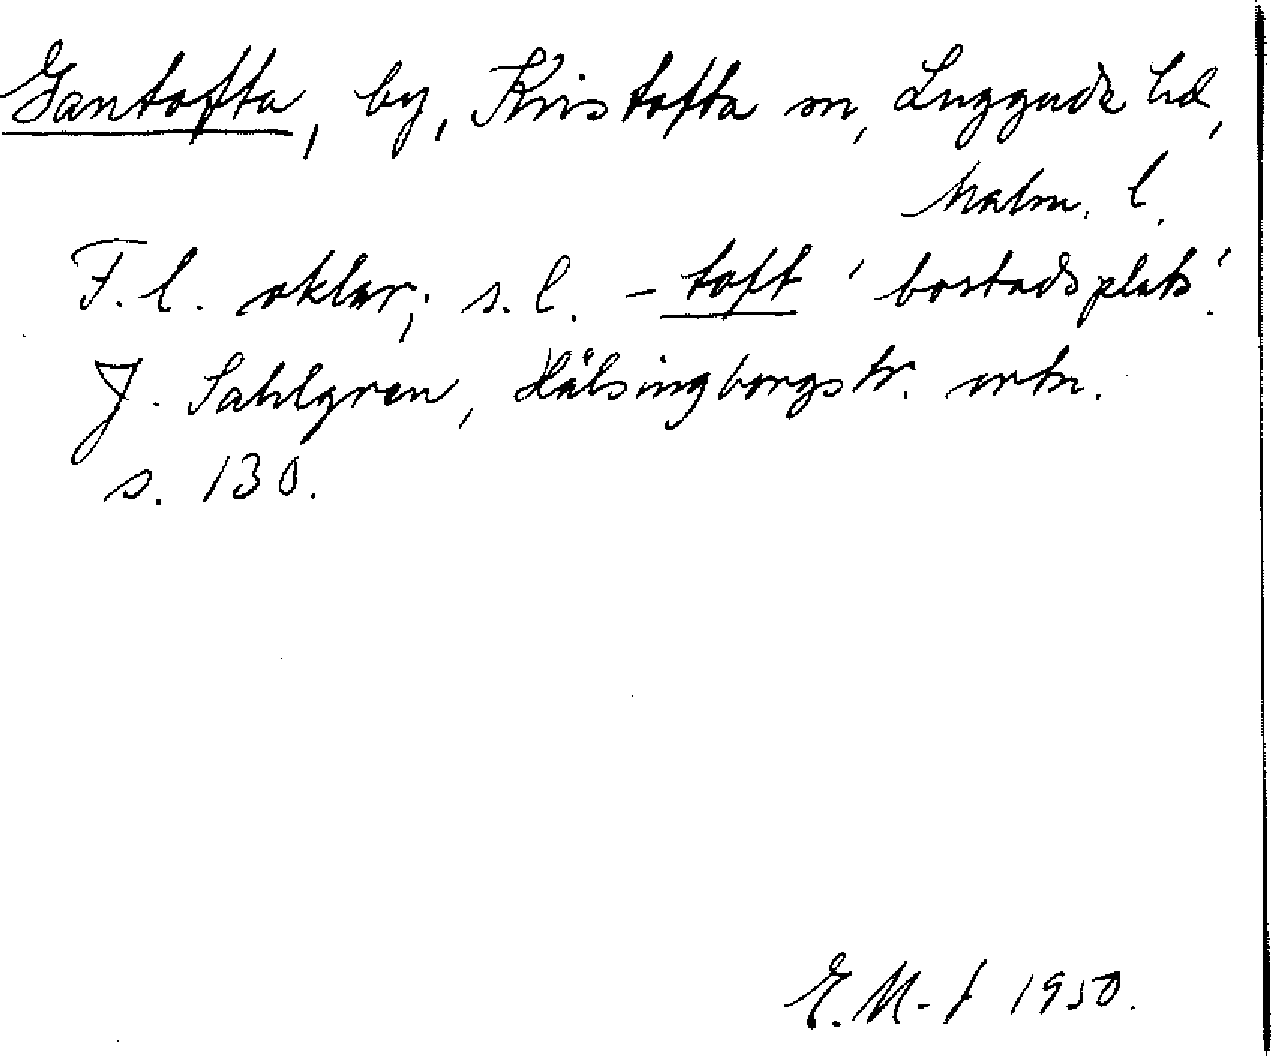 Gantofta, by, Kvistofta sn, Luggude hd,
Malm. l.
F. l. oklar; s. l. - toft 'bostadsplats'.
J. Sahlgren, Hälsingborgstr. ortn.
s. 130.
E. M-f 1950.